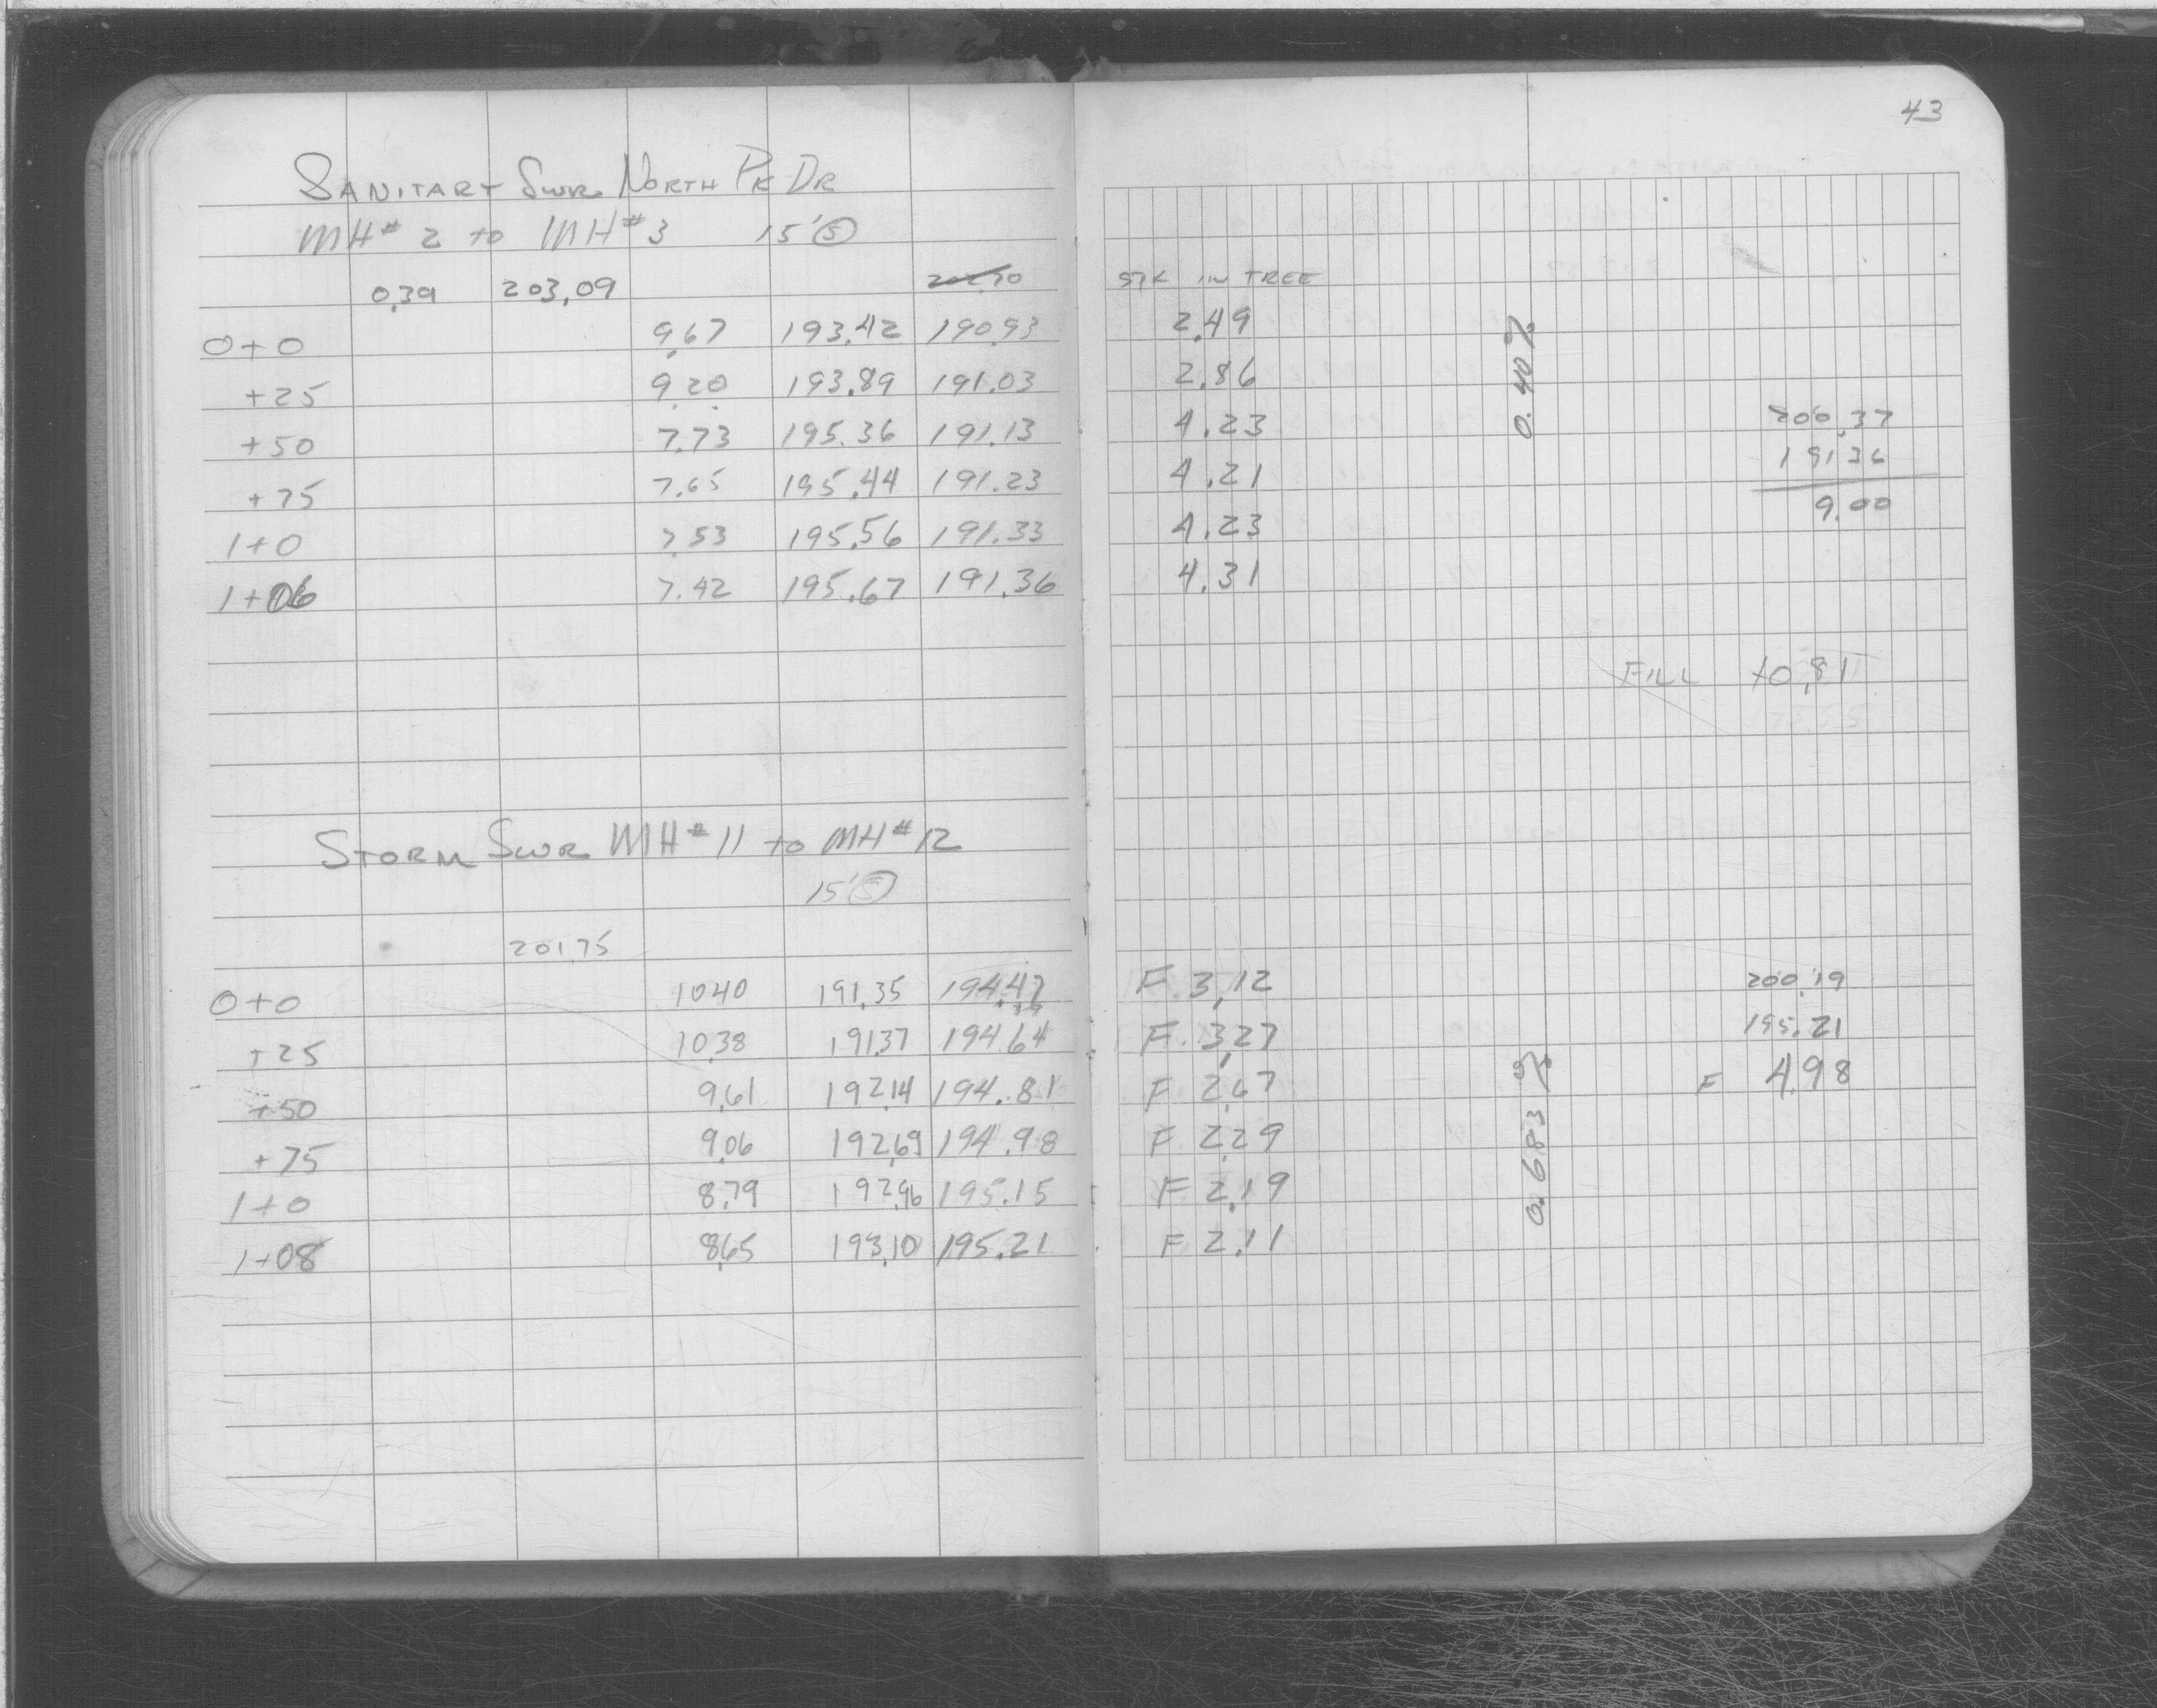 43
SANITARY SWR NORTH PK DR
MH# 2 to MH# 3 15' Ⓢ
0.39 203.09 202.70 STK IN TREE
0+0 9.67 193.42 190.93 2.49
+25 9.20 193.89 191.03 2.86
+50 7.73 195.36 191.13 4.23
+75 7.65 195.44 191.23 4.21
1+0 7.53 195.56 191.33 4.23
1+06 7.42 195.67 191.36 4.31
0.40%
200.37
191.36
9.00
FILL to 0.81
STORM SWR MH# 11 to MH# 12
15' Ⓢ
201.75
0+0 10.40 191.35 194.47 F 3.12
+25 10.38 191.37 194.64 F. 3.27
+50 9.61 192.14 194.81 F 2.67
+75 9.06 192.69 194.98 F 2.29
1+0 8.79 192.96 195.15 F 2.19
1+08 8.65 193.10 195.21 F 2.11
0.683%
200.19
195.21
F 4.98